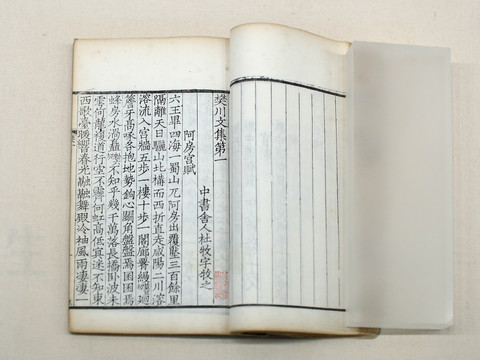 樊川文集第一
中書舍人杜牧字牧之
阿房宮賦
六王畢四海一蜀山兀阿房出覆壓三百餘里
隔離天日驪山北構而西折直走咸陽二川溶
溶流入宮牆五步一樓十步一閣廊腰縵廻
簷牙高啄各抱地勢鉤心鬬角盤盤焉囷囷焉
蜂房水渦矗不知乎幾千萬落長橋卧波未
雲何龍複道行空不霽何虹高低冥迷不知東
西歌臺暖響春光融融舞殿冷袖風雨凄凄一